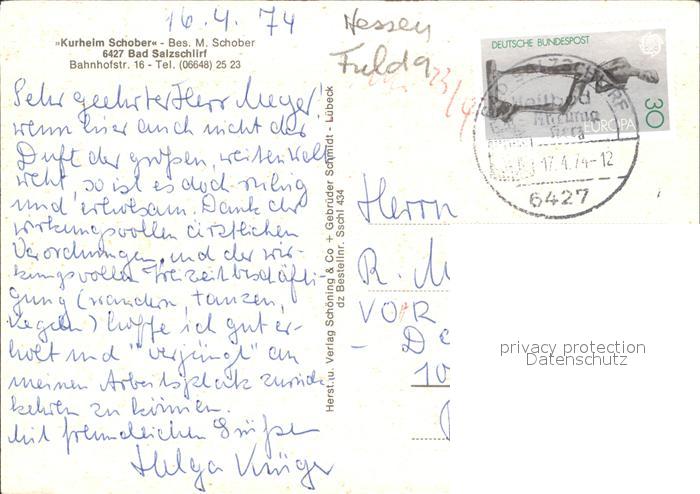 16.4.74
»Kurheim Schober« - Bes. M. Schober
6427 Bad Salzschlirf
Bahnhofstr. 16 - Tel. (06648) 25 23
Sehr geehrter Herr Meyer!
wenn hier auch nicht der
Duft der großen, weiten Welt
weht, so ist es doch ruhig
und erholsam. Dank der
wirkungsvollen ärztlichen
Verordnungen und der wir-
kungsvollen Freizeitbeschäfti-
gung (wandern, tanzen,
kegeln) hoffe ich gut er-
holt und "verjüngt" an
meinen Arbeitsplatz zurück
kehren zu können.
Mit freundlichen Grüßen
Helga Krüger
Herst. u. Verlag Schöning & Co + Gebrüder Schmidt - Lübeck
dz Bestellnr. Sschl 434
Hessen
Fulda
DEUTSCHE BUNDESPOST
30
EUROPA
17.4.74-12
6427
Herrn
R. M
VOR
10
privacy protection
Datenschutz